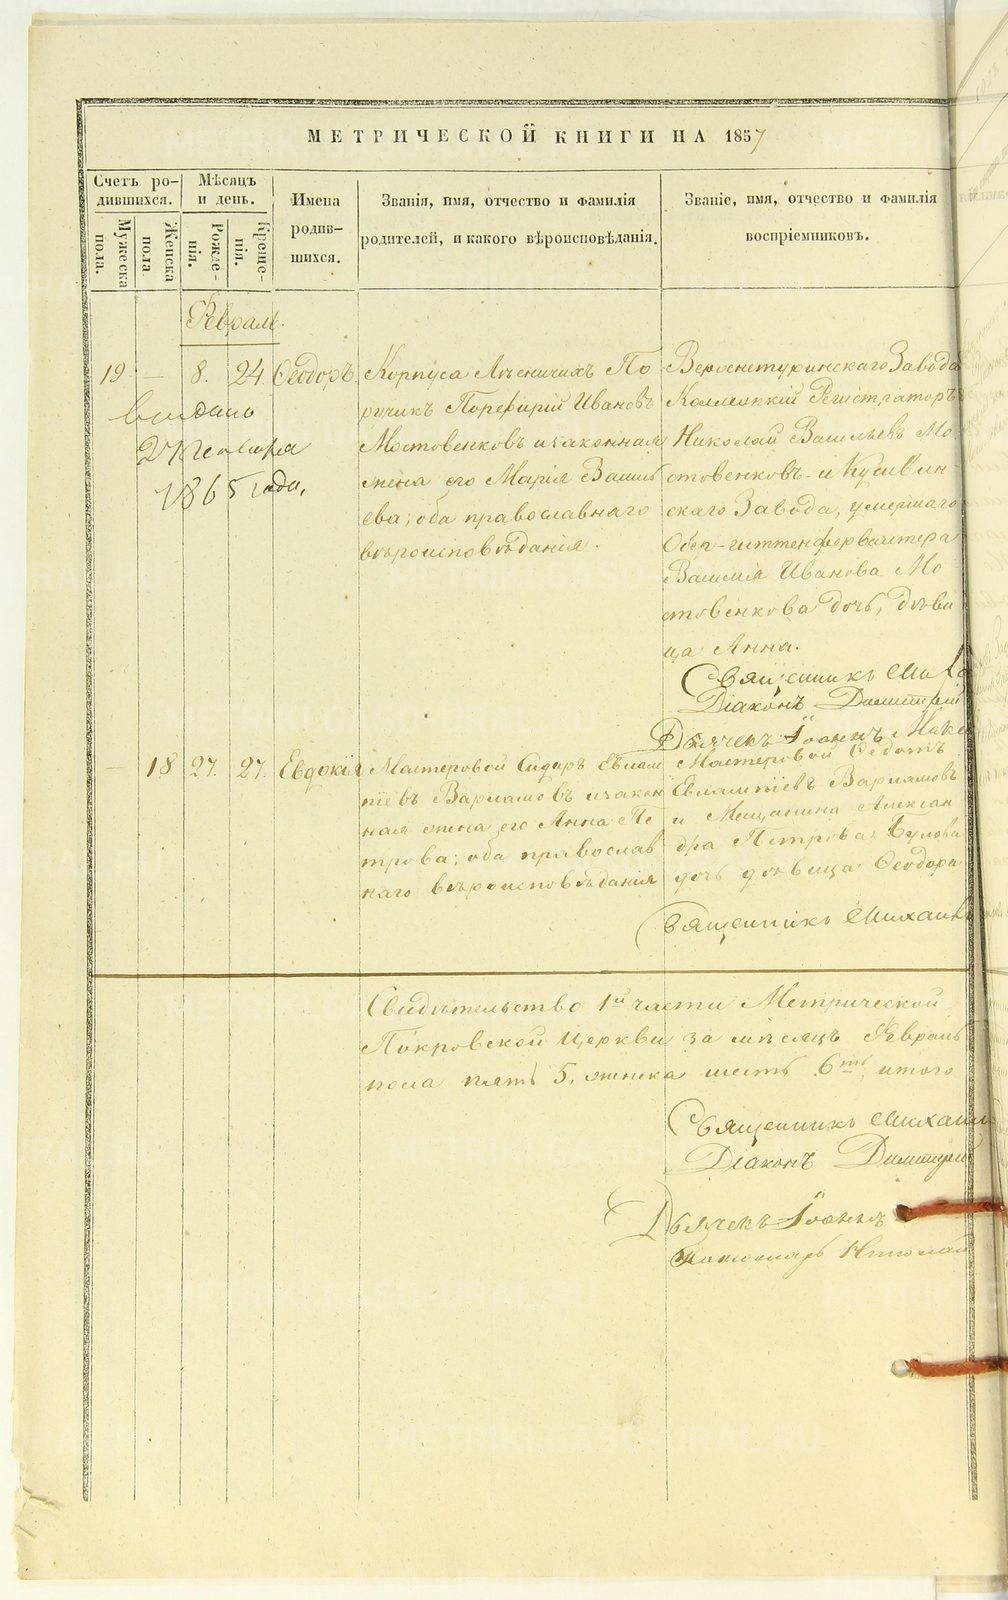 МЕТРИЧЕСКОЙ КНИГИ НА 1857
Счетъ ро-
дившихся.
Мужеска
пола.
Женска
пола
Мѣсяцъ
и день.
Рожде-
нія.
Креще-
нія.
Имена
родив-
шихся.
Званія, имя, отчество и фамилія
родителей, и какого вѣроисповѣданія.
Званіе, имя, отчество и фамилія
воспріемниковъ.
Февраль.
19 — 8. 24. Ѳеодоръ.
Выдано
27 Генваря
1865 года,
Корпуса Лѣсничихъ По
ручикъ Порфирій Ивановъ
Мостовенковъ и законная
жена его Марія Василь
ева; оба православнаго
вѣроисповѣданія.
Верхнетуринскаго Завода
Коллежкій Регистраторъ
Николай Васильевъ Мо
стовенковъ и Кушвин-
скаго Завода, умершаго
Обер-гиттенфервалтера
Василія Иванова Мо
стовенкова дочь, дѣви
ца Анна.
Священникъ
Діаконъ Димитрій
Дьячекъ Іоаннъ
— 18 27. 27. Евдокія
Мастеровой Сидоръ Евлам
піевъ Варламовъ и закон
ная жена его Анна Пе
трова; оба православ
наго вѣроисповѣданія
Мастеровой Ѳедотъ
Евлампіевъ Варламовъ
и Мещанина Алексан
дра Петрова
дочь дѣвица Ѳеодора
Священникъ Михаилъ
Свидѣтельство 1й части Метрической
Покровской Церкви за мѣсяцъ Февраль
пола пять 5, женска шесть 6ть, итого
Священникъ Михаил
Діаконъ Димитрій
Дьячекъ Іоаннъ
Пономарь Николай
METRIKI.GASO-URAL.RU